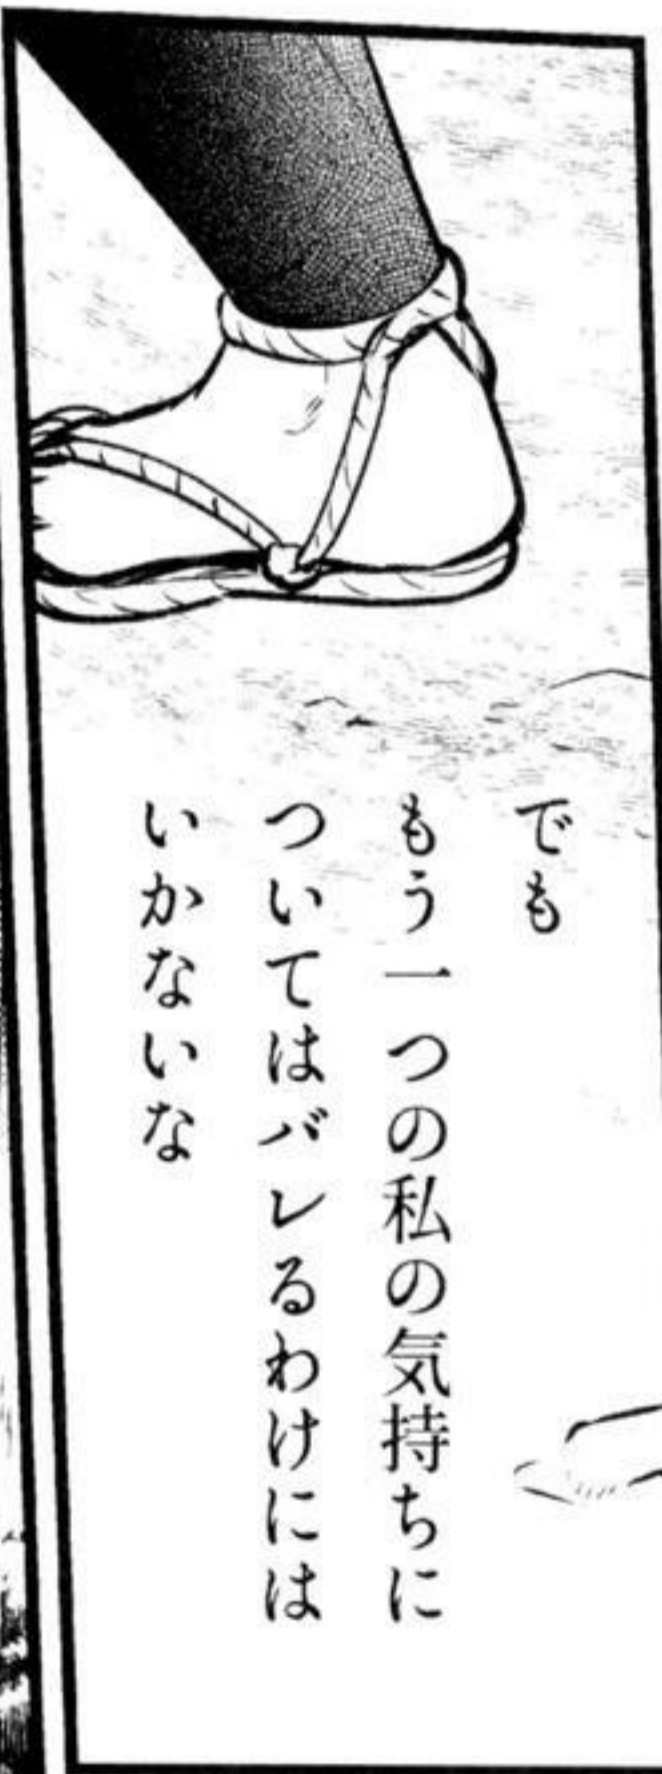 でも
もう一つの私の気持ちに
ついてはバレるわけには
いかないな